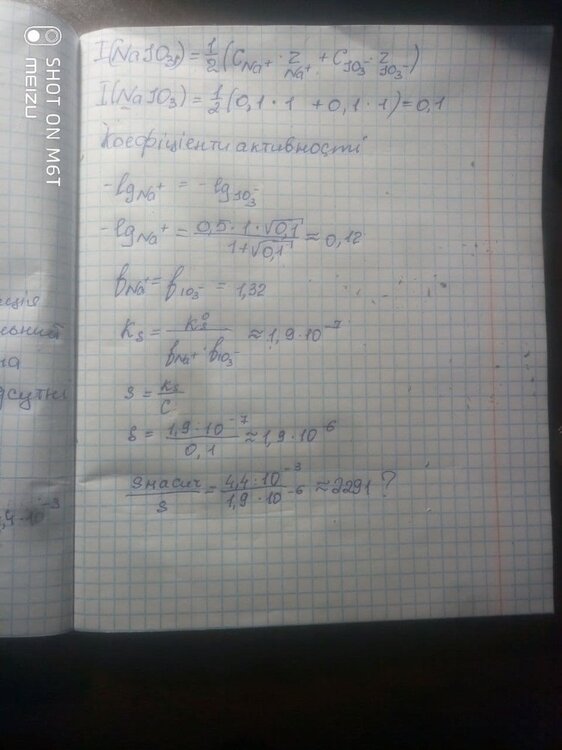 SHOT ON M6T
MEIZU
I(NaIO₃) = 1/2 (C_Na⁺ · z_Na⁺ + C_IO₃⁻ · z_IO₃⁻)
I(NaIO₃) = 1/2 (0,1 · 1 + 0,1 · 1) = 0,1
Коефіцієнти активності
-lg_Na⁺ = -lg_IO₃⁻
-lg_Na⁺ = 0,5 · 1 · √0,1 / 1+√0,1 ≈ 0,12
f_Na⁺ = f_IO₃⁻ = 1,32
K_s = K_s⁰ / f_Na⁺ · f_IO₃⁻ ≈ 1,9 · 10⁻⁷
s = K_s / C
s = 1,9 · 10⁻⁷ / 0,1 ≈ 1,9 · 10⁻⁶
s насич / s = 4,4 · 10⁻³ / 1,9 · 10⁻⁶ ≈ 2291 ?